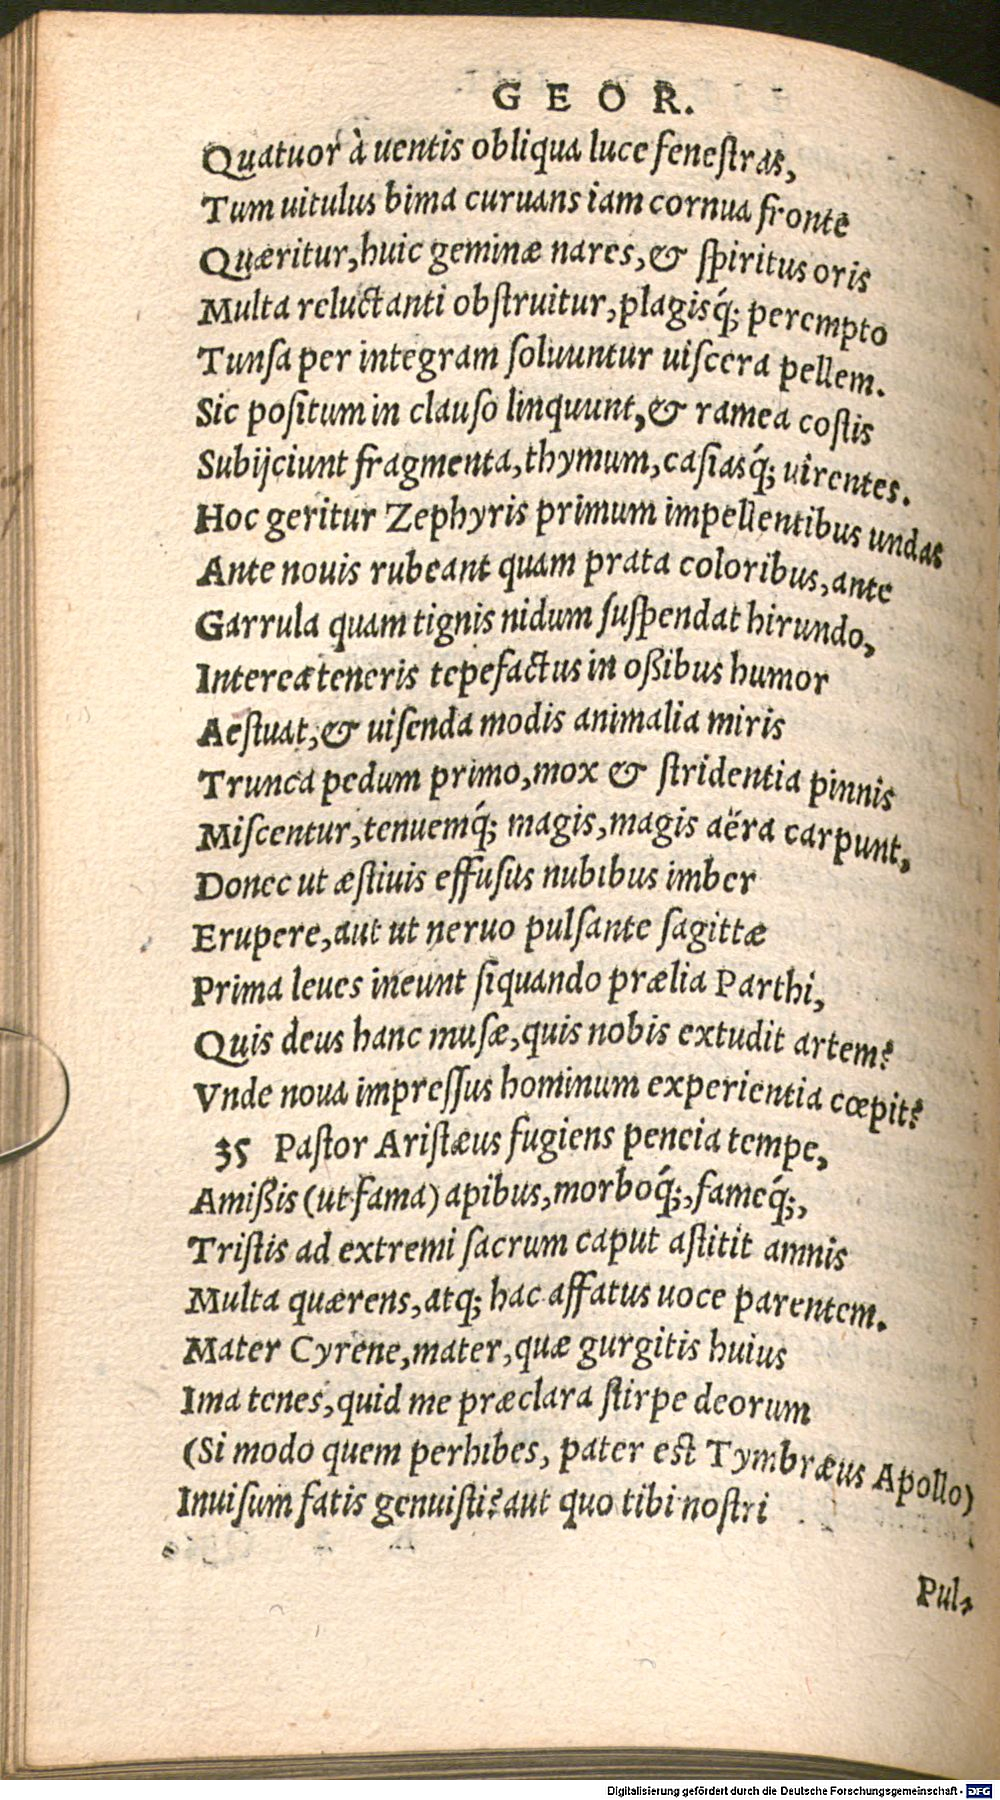 GEOR.
Quatuor à uentis obliqua luce fenestras,
Tum uitulus bima curuans iam cornua fronte
Quæritur, huic geminæ nares, & spiritus oris
Multa reluctanti obstruitur, plagisq́; perempto
Tunsa per integram soluuntur uiscera pellem.
Sic positum in clauso linquunt, & ramea costis
Subijciunt fragmenta, thymum, casiasq́; uirentes.
Hoc geritur Zephyris primum impellentibus undas
Ante nouis rubeant quam prata coloribus, ante
Garrula quam tignis nidum suspendat hirundo,
Intereæ teneris tepefactus in oßibus humor
Aestuat, & uisenda modis animalia miris
Trunca pedum primo, mox & stridentia pinnis
Miscentur, tenuemq́; magis, magis aëra carpunt,
Donec ut æstiuis effusus nubibus imber
Erupere, aut ut neruo pulsante sagittæ
Prima leues ineunt siquando prælia Parthi,
Quis deus hanc musæ, quis nobis extudit artem?
Vnde noua impressus hominum experientia cœpit?
35 Pastor Aristæus fugiens peneia tempe,
Amißis (ut fama) apibus, morboq́;, fameq́;,
Tristis ad extremi sacrum caput astitit amnis
Multa quærens, atq; hac affatus uoce parentem.
Mater Cyrene, mater, quæ gurgitis huius
Ima tenes, quid me præclara stirpe deorum
(Si modo quem perhibes, pater est Tymbræus Apollo)
Inuisum fatis genuisti? aut quo tibi nostri
Pul-
Digitalisierung gefördert durch die Deutsche Forschungsgemeinschaft - DFG